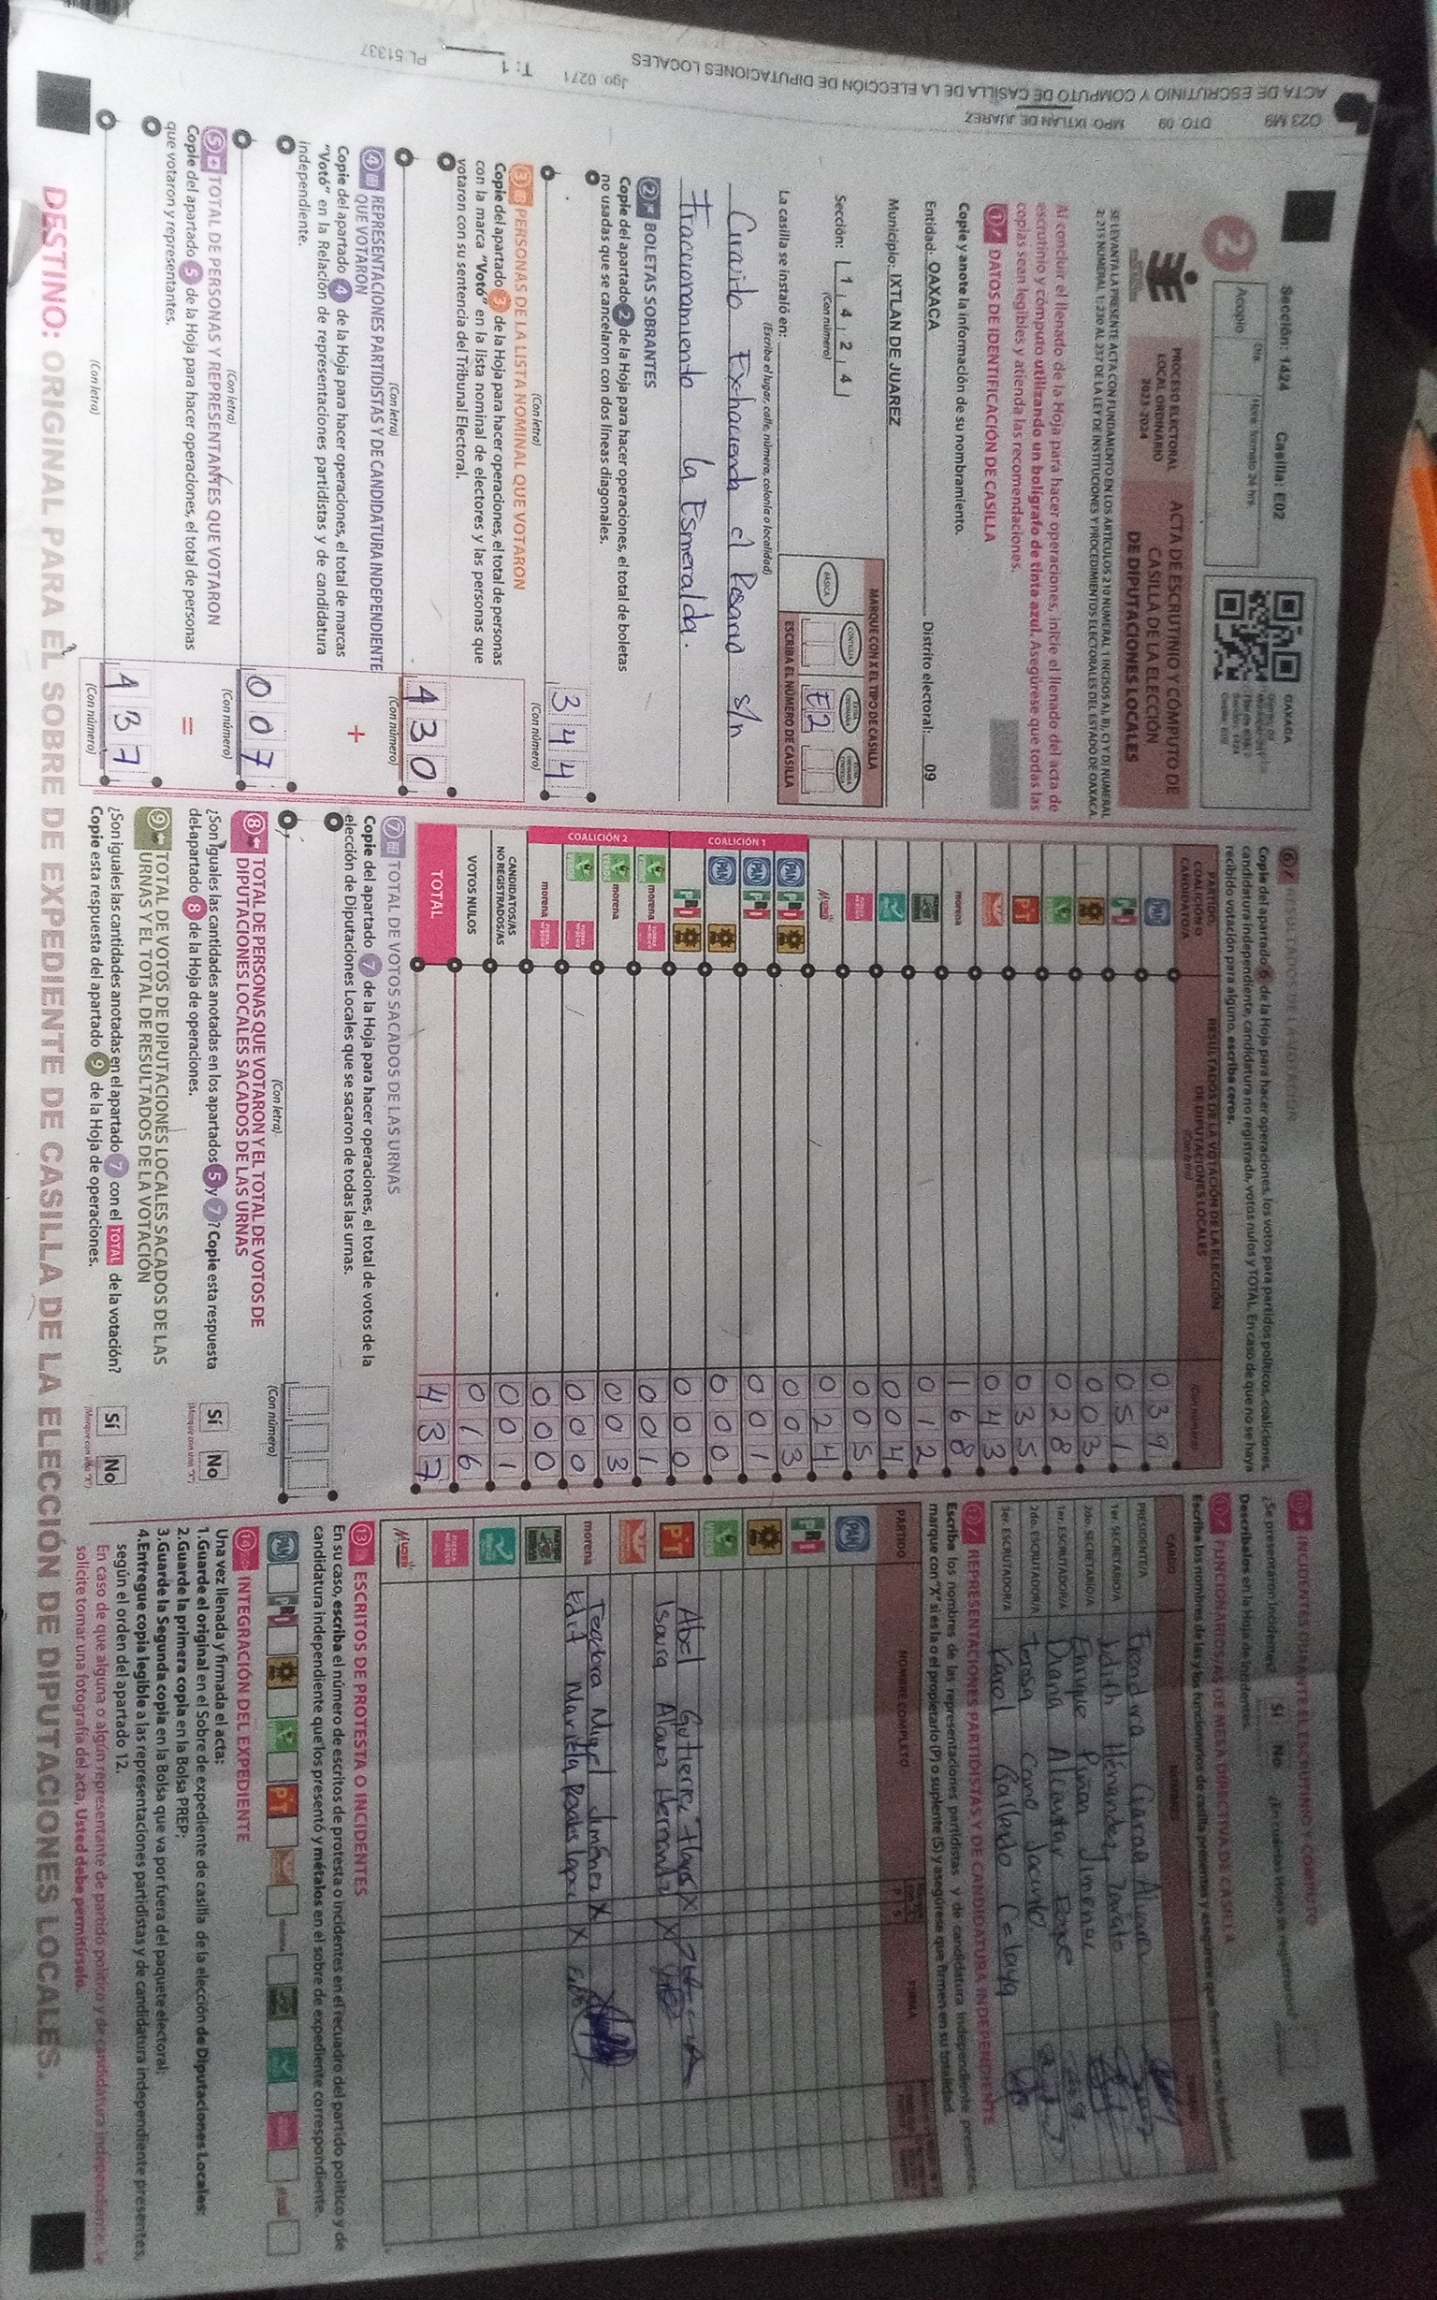 ACTA DE ESCRUTINIO Y CÓMPUTO DE CASILLA DE LA ELECCIÓN DE DIPUTACIONES LOCALES
O23 M9 DTO. 09 MPO. IXTLAN DE JUAREZ
Jgo. 0271 T: 1 PL.51337
Sección: 1424 Casilla: E02
2
Acopio
Día
Hora: formato 24 hrs.
OAXACA
PROCESO ELECTORAL
LOCAL ORDINARIO
2023-2024
ACTA DE ESCRUTINIO Y CÓMPUTO DE
CASILLA DE LA ELECCIÓN
DE DIPUTACIONES LOCALES
SE LEVANTA LA PRESENTE ACTA CON FUNDAMENTO EN LOS ARTÍCULOS 210 NUMERAL 1 INCISOS A), B), C) Y D) NUMERAL
2; 215 NUMERAL 1; 230 AL 237 DE LA LEY DE INSTITUCIONES Y PROCEDIMIENTOS ELECTORALES DEL ESTADO DE OAXACA.
Al concluir el llenado de la Hoja para hacer operaciones, inicie el llenado del acta de
escrutinio y cómputo utilizando un bolígrafo de tinta azul. Asegúrese que todas las
copias sean legibles y atienda las recomendaciones.
1 DATOS DE IDENTIFICACIÓN DE CASILLA
Copie y anote la información de su nombramiento.
Entidad: OAXACA Distrito electoral: 09
Municipio: IXTLAN DE JUAREZ
Sección: 1 4 2 4
(Con número)
MARQUE CON X EL TIPO DE CASILLA
BÁSICA CONTIGUA
E2
ESCRIBA EL NÚMERO DE CASILLA
La casilla se instaló en:
(Escriba el lugar, calle, número, colonia o localidad)
Circuito Exhacienda el Rosario s/n
Fraccionamiento la Esmeralda.
2 BOLETAS SOBRANTES
Copie del apartado 2 de la Hoja para hacer operaciones, el total de boletas
no usadas que se cancelaron con dos líneas diagonales.
344
(Con letra) (Con número)
3 PERSONAS DE LA LISTA NOMINAL QUE VOTARON
Copie del apartado 3 de la Hoja para hacer operaciones, el total de personas
con la marca "Votó" en la lista nominal de electores y las personas que
votaron con su sentencia del Tribunal Electoral.
430
(Con letra) (Con número)
4 REPRESENTACIONES PARTIDISTAS Y DE CANDIDATURA INDEPENDIENTE
QUE VOTARON
+
Copie del apartado 4 de la Hoja para hacer operaciones, el total de marcas
"Votó" en la Relación de representaciones partidistas y de candidatura
independiente.
007
(Con letra) (Con número)
5 TOTAL DE PERSONAS Y REPRESENTANTES QUE VOTARON
=
Copie del apartado 5 de la Hoja para hacer operaciones, el total de personas
que votaron y representantes.
437
(Con letra) (Con número)
6 RESULTADOS DE LA VOTACIÓN
Copie del apartado 6 de la Hoja para hacer operaciones, los votos para partidos políticos, coaliciones,
candidatura independiente, candidatura no registrada, votos nulos y TOTAL. En caso de que no se haya
recibido votación para alguno, escriba ceros.
PARTIDO, COALICIÓN O CANDIDATO/A
RESULTADOS DE LA VOTACIÓN DE LA ELECCIÓN
DE DIPUTACIONES LOCALES
(Con letra) (Con número)
PAN 039
PRI 051
003
028
PT 035
043
morena 168
012
004
005
024
COALICIÓN 1
PAN PRI 003
PAN PRI 001
PAN 000
PRI 000
COALICIÓN 2
morena 001
morena 003
000
morena 000
CANDIDATOS/AS
NO REGISTRADOS/AS 001
VOTOS NULOS 016
TOTAL 437
7 TOTAL DE VOTOS SACADOS DE LAS URNAS
Copie del apartado 7 de la Hoja para hacer operaciones, el total de votos de la
elección de Diputaciones Locales que se sacaron de todas las urnas.
(Con letra) (Con número)
8 TOTAL DE PERSONAS QUE VOTARON Y EL TOTAL DE VOTOS DE
DIPUTACIONES LOCALES SACADOS DE LAS URNAS
¿Son iguales las cantidades anotadas en los apartados 5 y 7? Copie esta respuesta
del apartado 8 de la Hoja de operaciones.
Sí No
(Marque con una "X")
9 TOTAL DE VOTOS DE DIPUTACIONES LOCALES SACADOS DE LAS
URNAS Y EL TOTAL DE RESULTADOS DE LA VOTACIÓN
¿Son iguales las cantidades anotadas en el apartado 7 con el TOTAL de la votación?
Copie esta respuesta del apartado 9 de la Hoja de operaciones.
Sí No
(Marque con una "X")
10 INCIDENTES DURANTE EL ESCRUTINIO Y CÓMPUTO
¿Se presentaron incidentes? Sí No ¿En cuántas Hojas se registraron?
Descríbalos en la Hoja de Incidentes.
11 FUNCIONARIOS/AS DE MESA DIRECTIVA DE CASILLA
Escriba los nombres de las y los funcionarios de casilla presentes y asegúrese que firmen en su totalidad.
CARGO NOMBRES FIRMAS
PRESIDENTE/A
1er. SECRETARIO/A Judith Hernandez
2do. SECRETARIO/A Enrique Jimenez
1er. ESCRUTADOR/A Diana Alcantar
2do. ESCRUTADOR/A teresa Cano Jacinto
3er. ESCRUTADOR/A Karol Gallardo Celaya
12 REPRESENTACIONES PARTIDISTAS Y DE CANDIDATURA INDEPENDIENTE
Escriba los nombres de las representaciones partidistas y de candidatura independiente presentes,
marque con "X" si es la o el propietario (P) o suplente (S) y asegúrese que firmen en su totalidad.
PARTIDO NOMBRE COMPLETO P S FIRMA
PAN
PRI
PT Abel Gutierrez Flores X
Isaura Alavez Hernandez X
morena Teodora Miguel Jiménez X
Edit Mariela Rosales Lopez X
13 ESCRITOS DE PROTESTA O INCIDENTES
En su caso, escriba el número de escritos de protesta o incidentes en el recuadro del partido político y de
candidatura independiente que los presentó y métalos en el sobre de expediente correspondiente.
PAN PRI PT morena
14 INTEGRACIÓN DEL EXPEDIENTE
Una vez llenada y firmada el acta:
1.Guarde el original en el Sobre de expediente de casilla de la elección de Diputaciones Locales;
2.Guarde la primera copia en la Bolsa PREP;
3.Guarde la Segunda copia en la Bolsa que va por fuera del paquete electoral;
4.Entregue copia legible a las representaciones partidistas y de candidatura independiente presentes,
según el orden del apartado 12.
En caso de que alguna o algún representante de partido político y de candidatura independiente, le
solicite tomar una fotografía del acta, Usted debe permitírselo.
DESTINO: ORIGINAL PARA EL SOBRE DE EXPEDIENTE DE CASILLA DE LA ELECCIÓN DE DIPUTACIONES LOCALES.